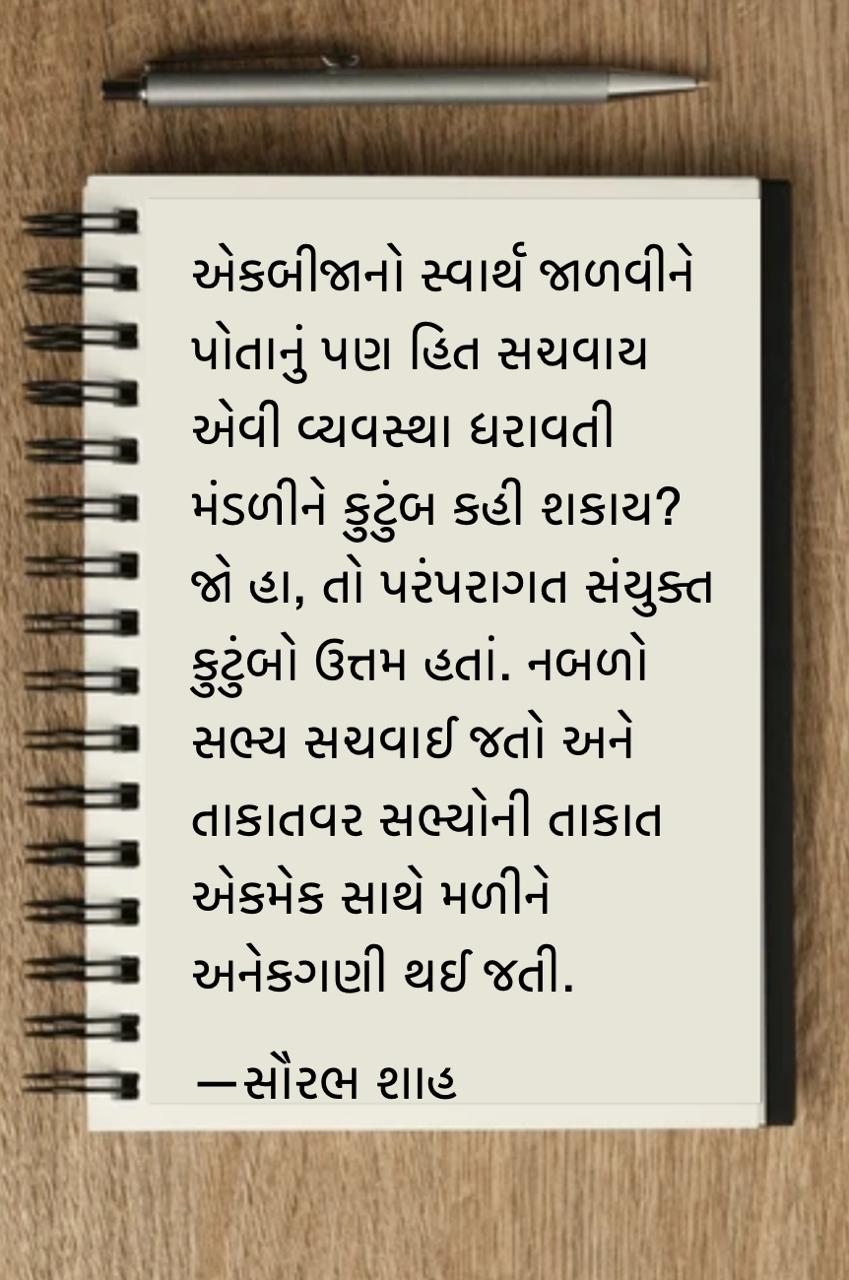 એકબીજાનો સ્વાર્થ જાળવીને
પોતાનું પણ હિત સચવાય
એવી વ્યવસ્થા ધરાવતી
મંડળીને કુટુંબ કહી શકાય?
જો હા, તો પરંપરાગત સંયુક્ત
કુટુંબો ઉત્તમ હતાં. નબળો
સભ્ય સચવાઈ જતો અને
તાકાતવર સભ્યોની તાકાત
એકમેક સાથે મળીને
અનેકગણી થઈ જતી.
—સૌરભ શાહ